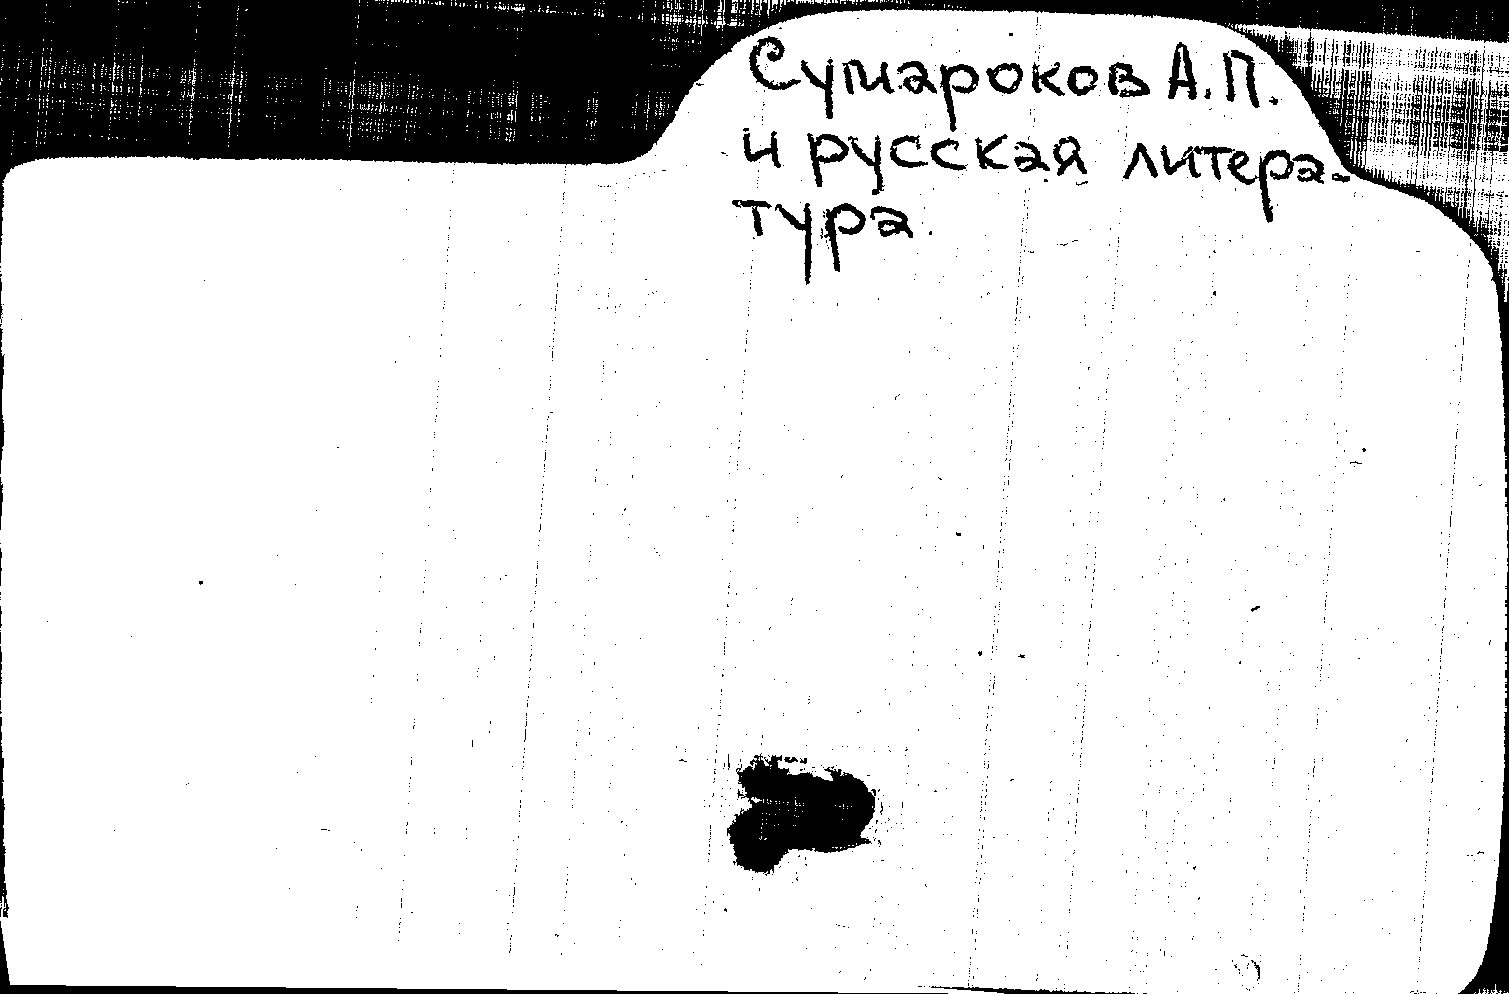 Сумароков А.П.
и русская литера-
тура.